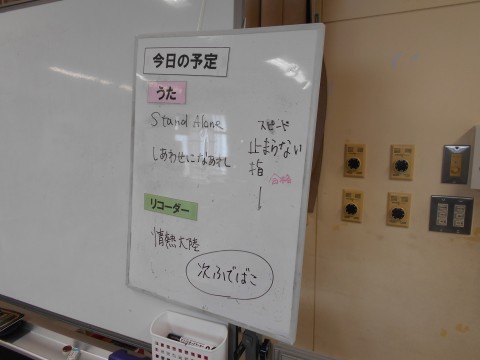 今日の予定
うた
Stand Alone
しあわせになあれ
スピード
止まらない
指
リコーダー
情熱大陸
次ふでばこ